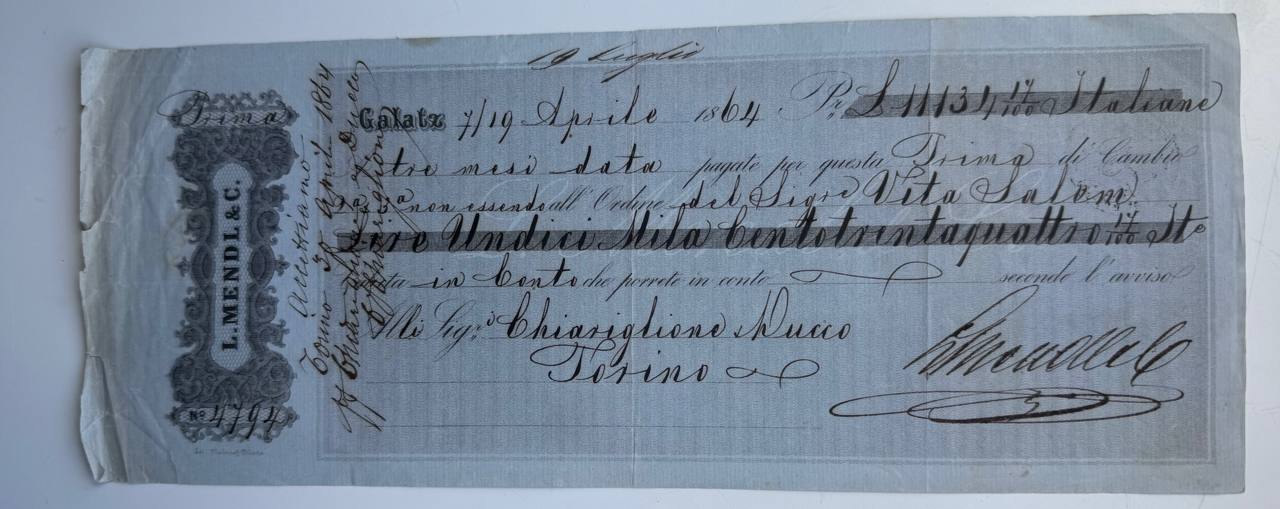 19 Luglio
Prima
Galatz 7/19 Aprile 1864 Pr £ 11134 17/100 Italiane
tre mesi data pagate per questa Prima di Cambio
2a 3a non essendo all' Ordine del Sigre Vita Salom
Lire Undici Mila Centotrentaquattro 17/100 Ite
in Conto che porrete in conto secondo l'avviso
Alli Sigri Chiariglione Mucco
Torino
L Mendl & C
L. MENDL & C.
No 4794
Accettiamo
Torino 30 April 1864